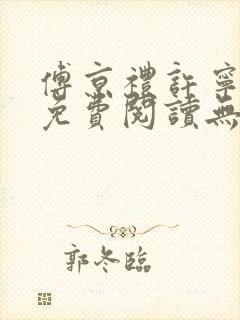 傅京禮許寧
免費閱讀無
郭冬臨